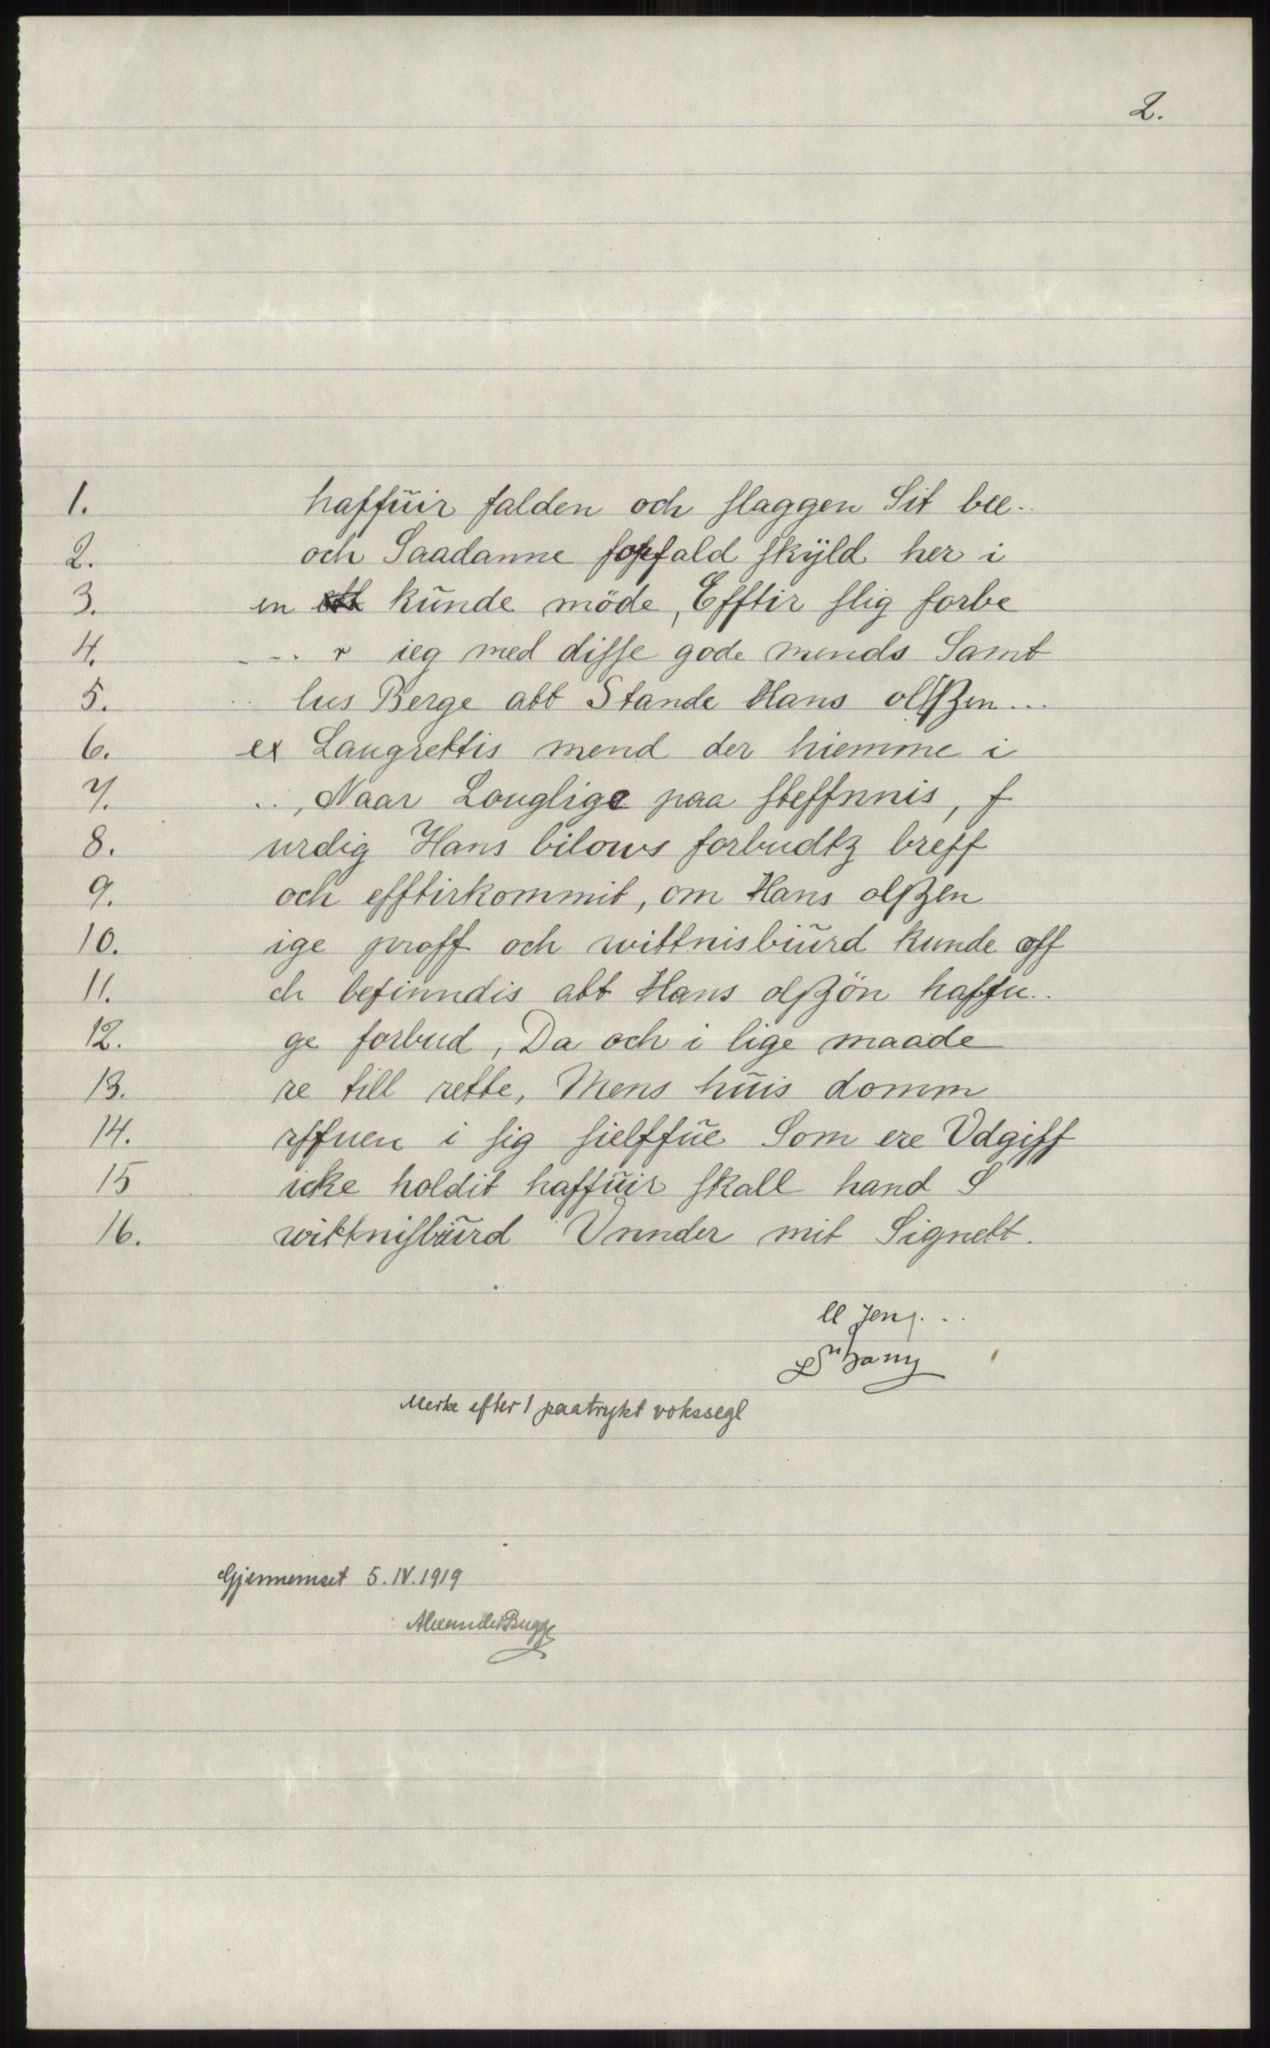 2.
1. haffŭir falden och slaggen Sit bee..
2. och Saadanne forfald skÿld her i
3. en kŭnde möde, Efftir slig forbe
4. --. r ieg med disse gode mends Samt
5. .. lus Berge att Stande Hans olsßen...
6. ex Laugrettis mend der hiemme i
7. .., Naar Louglige paa steffnnis, f
8. urdig Hans bilows forbudtz breff
9. och efftirkommit, om Hans olßen
10. ige proff och wittnisbiŭrd kunde off
11. ch befinndis att Hans olßön haffu..
12. ge forbud, Da och i lige maade
13. re till rette, Mens hŭis domm
14. rffuen i sig sielffŭe Som ere Vdgiff
15 icke holdit haffŭir skall hand S
16. wittnisbŭrd Vnnder mit Signett.
Merke efter 1 paatrykt vokssegl
Gjennemset 5.IV.1919
Alexander Bugge